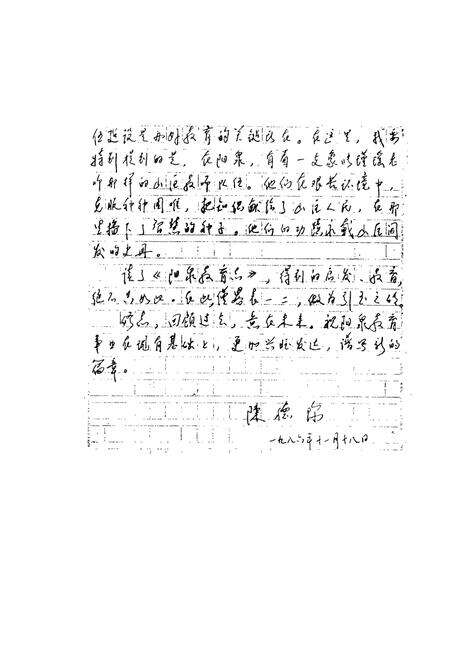 伍建设是办好教育的关键所在。在这里，我要
特别提到的是，在阳泉，有着一支象
那样的山区教师队伍。他们在艰苦环境中，
克服种种困难，把知识献给了山区人民，在那
里播下了智慧的种子。他们的功绩永载山区开
发的史册。
读了《阳泉教育志》，得到的启发、教育，
绝不止如此。在此仅略表一二，做为引玉之砖
修志，回顾过去，意在未来。祝阳泉教育
事业在现有基础上，更加兴旺发达，谱写新的
篇章。
陈德
一九八六年十一月十八日